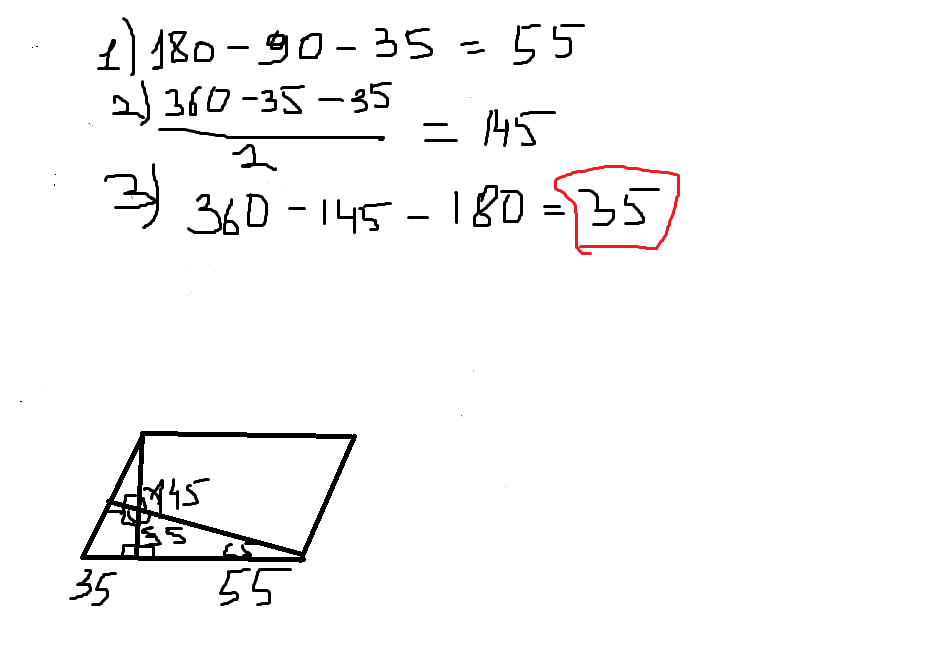 1) 180 - 90 - 35 = 55
2) 360 - 35 - 35 / 2 = 145
3) 360 - 145 - 180 = 35
145
55
35
55